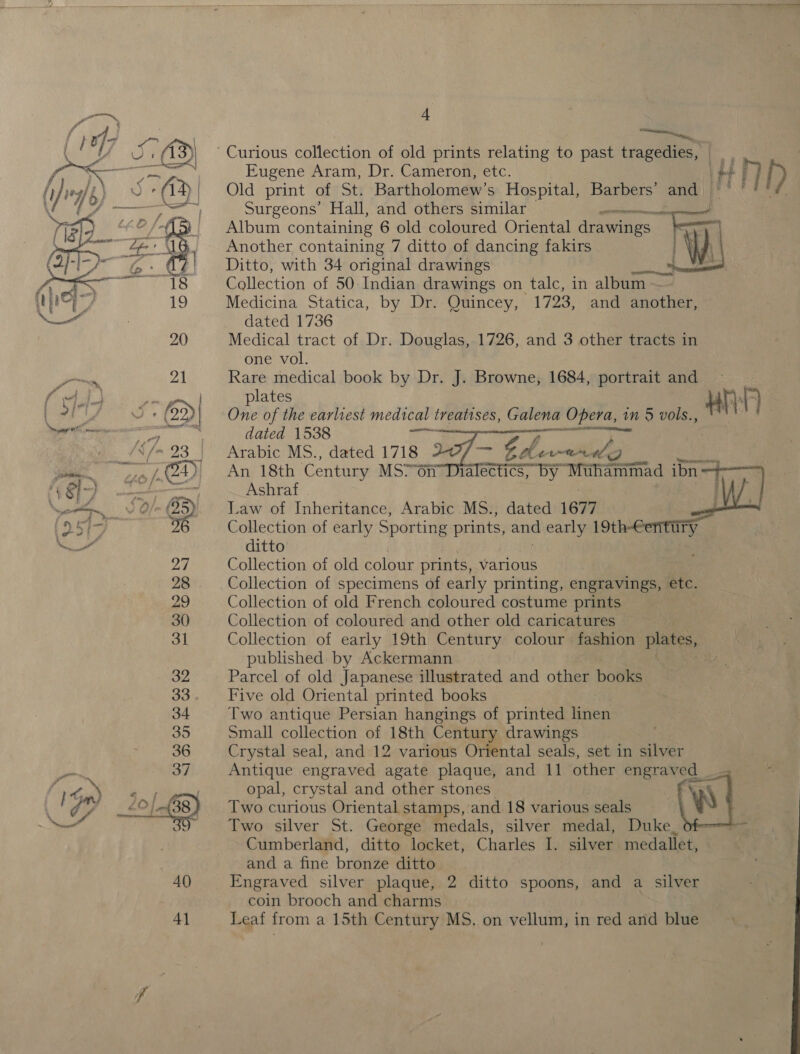 4
13 Curious collection of old prints relating to past tragedies,
Eugene Aram, Dr. Cameron, etc.
14 Old print of St. Bartholomew's Hospital, Barbers' and
Surgeons' Hall, and others similar
15 Album containing 6 old coloured Oriental drawings
16 Another containing 7 ditto of dancing fakirs W.
17 Ditto, with 34 original drawings
18 Collection of 50 Indian drawings on talc, in album
19 Medicina Statica, by Dr. Quincey, 1723, and another,
dated 1736
20 Medical tract of Dr. Douglas, 1726, and 3 other tracts in
one vol.
21 Rare medical book by Dr. J. Browne, 1684, portrait and
plates
22 One of the earliest medical treatises, Galena Opera, in 5 vols.,
dated 1538
23 Arabic MS., dated 1718 20/- Edwards
24 An 18th Century MS. on Dialectics, by Muhammad ibn
Ashraf W.
25 Law of Inheritance, Arabic MS., dated 1677
26 Collection of early Sporting prints, and early 19th Century
ditto
27 Collection of old colour prints, various
28 Collection of specimens of early printing, engravings, etc.
29 Collection of old French coloured costume prints
30 Collection of coloured and other old caricatures
31 Collection of early 19th Century colour fashion plates,
published by Ackermann
32 Parcel of old Japanese illustrated and other books
33 Five old Oriental printed books
34 Two antique Persian hangings of printed linen
35 Small collection of 18th Century drawings
36 Crystal seal, and 12 various Oriental seals, set in silver
37 Antique engraved agate plaque, and 11 other engraved
opal, crystal and other stones
20/- 38 Two curious Oriental stamps, and 18 various seals W
39 Two silver St. George medals, silver medal, Duke of
Cumberland, ditto locket, Charles I. silver medallet,
and a fine bronze ditto
40 Engraved silver plaque, 2 ditto spoons, and a silver
coin brooch and charms
41 Leaf from a 15th Century MS. on vellum, in red and blue